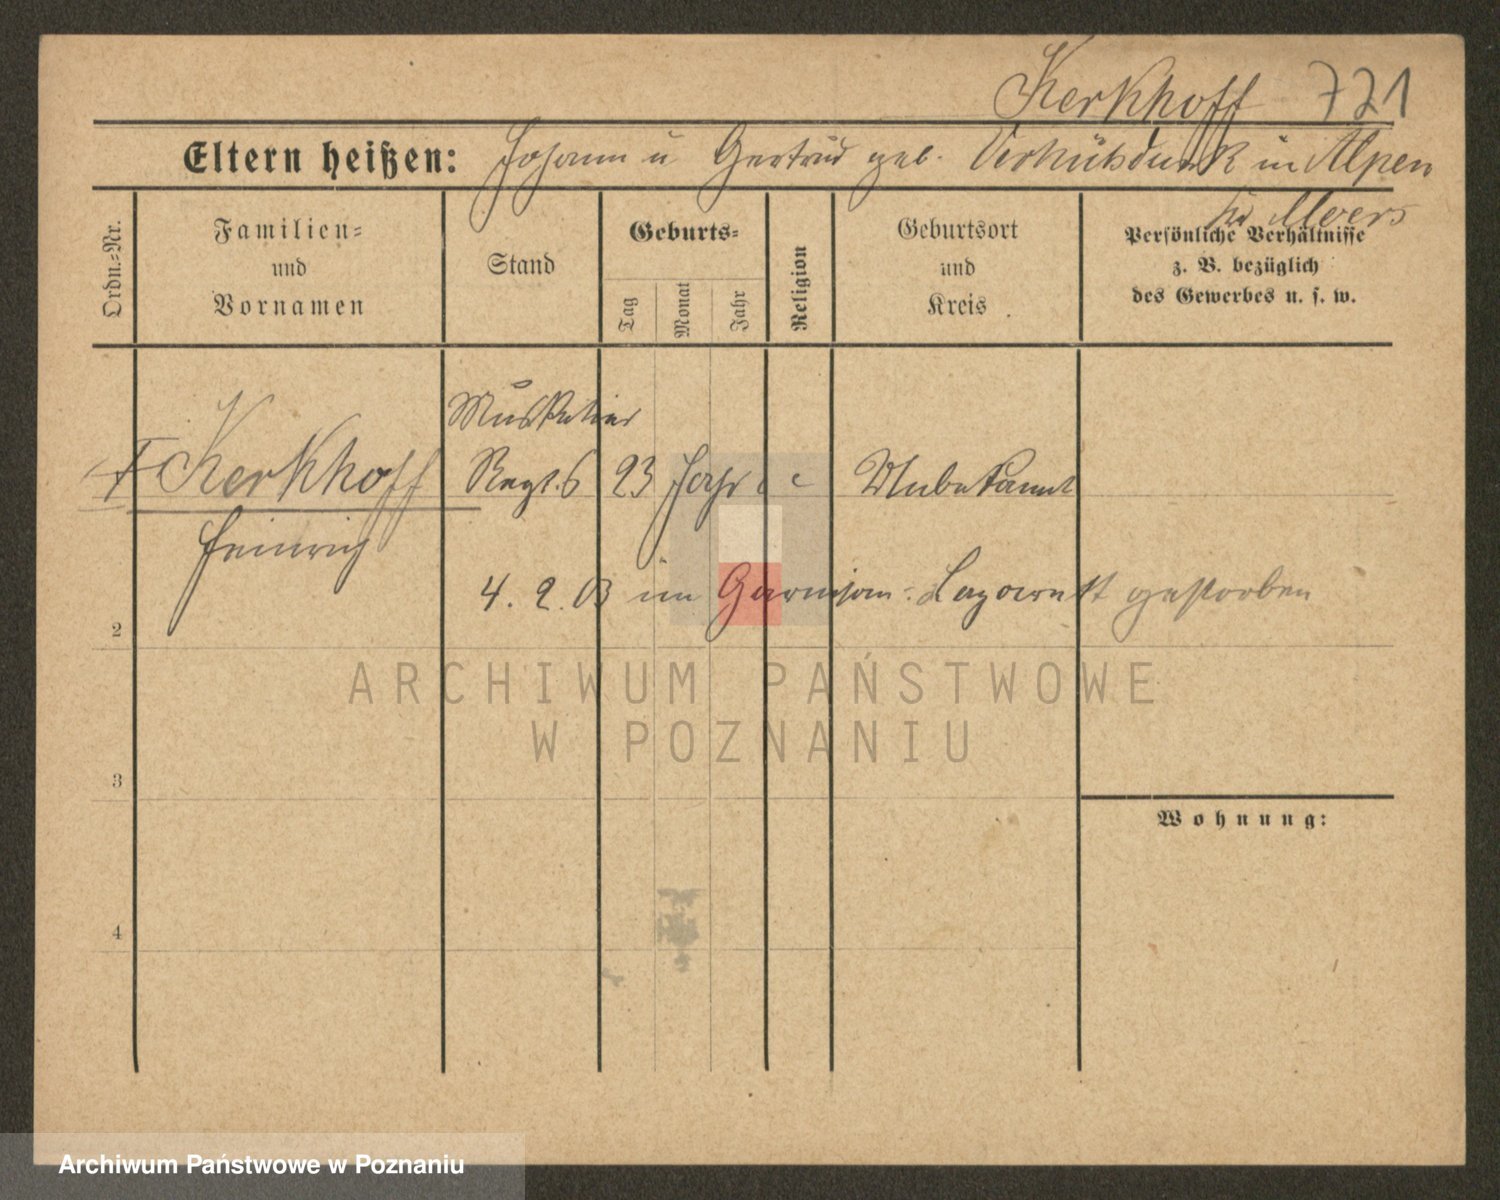 Kerkhoff 721
Eltern heißen: Johann u Gertrud geb. in Alpen
Kr Moers
Ordn.=Nr.
Familien=
und
Vornamen
Stand
Geburts=
Tag
Monat
Jahr
Religion
Geburtsort
und
Kreis
Persönliche Verhältnisse
z. B. bezüglich
des Gewerbes u. s. w.
Musketier
† Kerkhoff Regt. 6 23 Jahr c Unbekannt
Heinrich
4. 2. 03 im Garnison-Lazarett gestorben
2
ARCHIWUM PAŃSTWOWE
W POZNANIU
3
Wohnung:
4
Archiwum Państwowe w Poznaniu